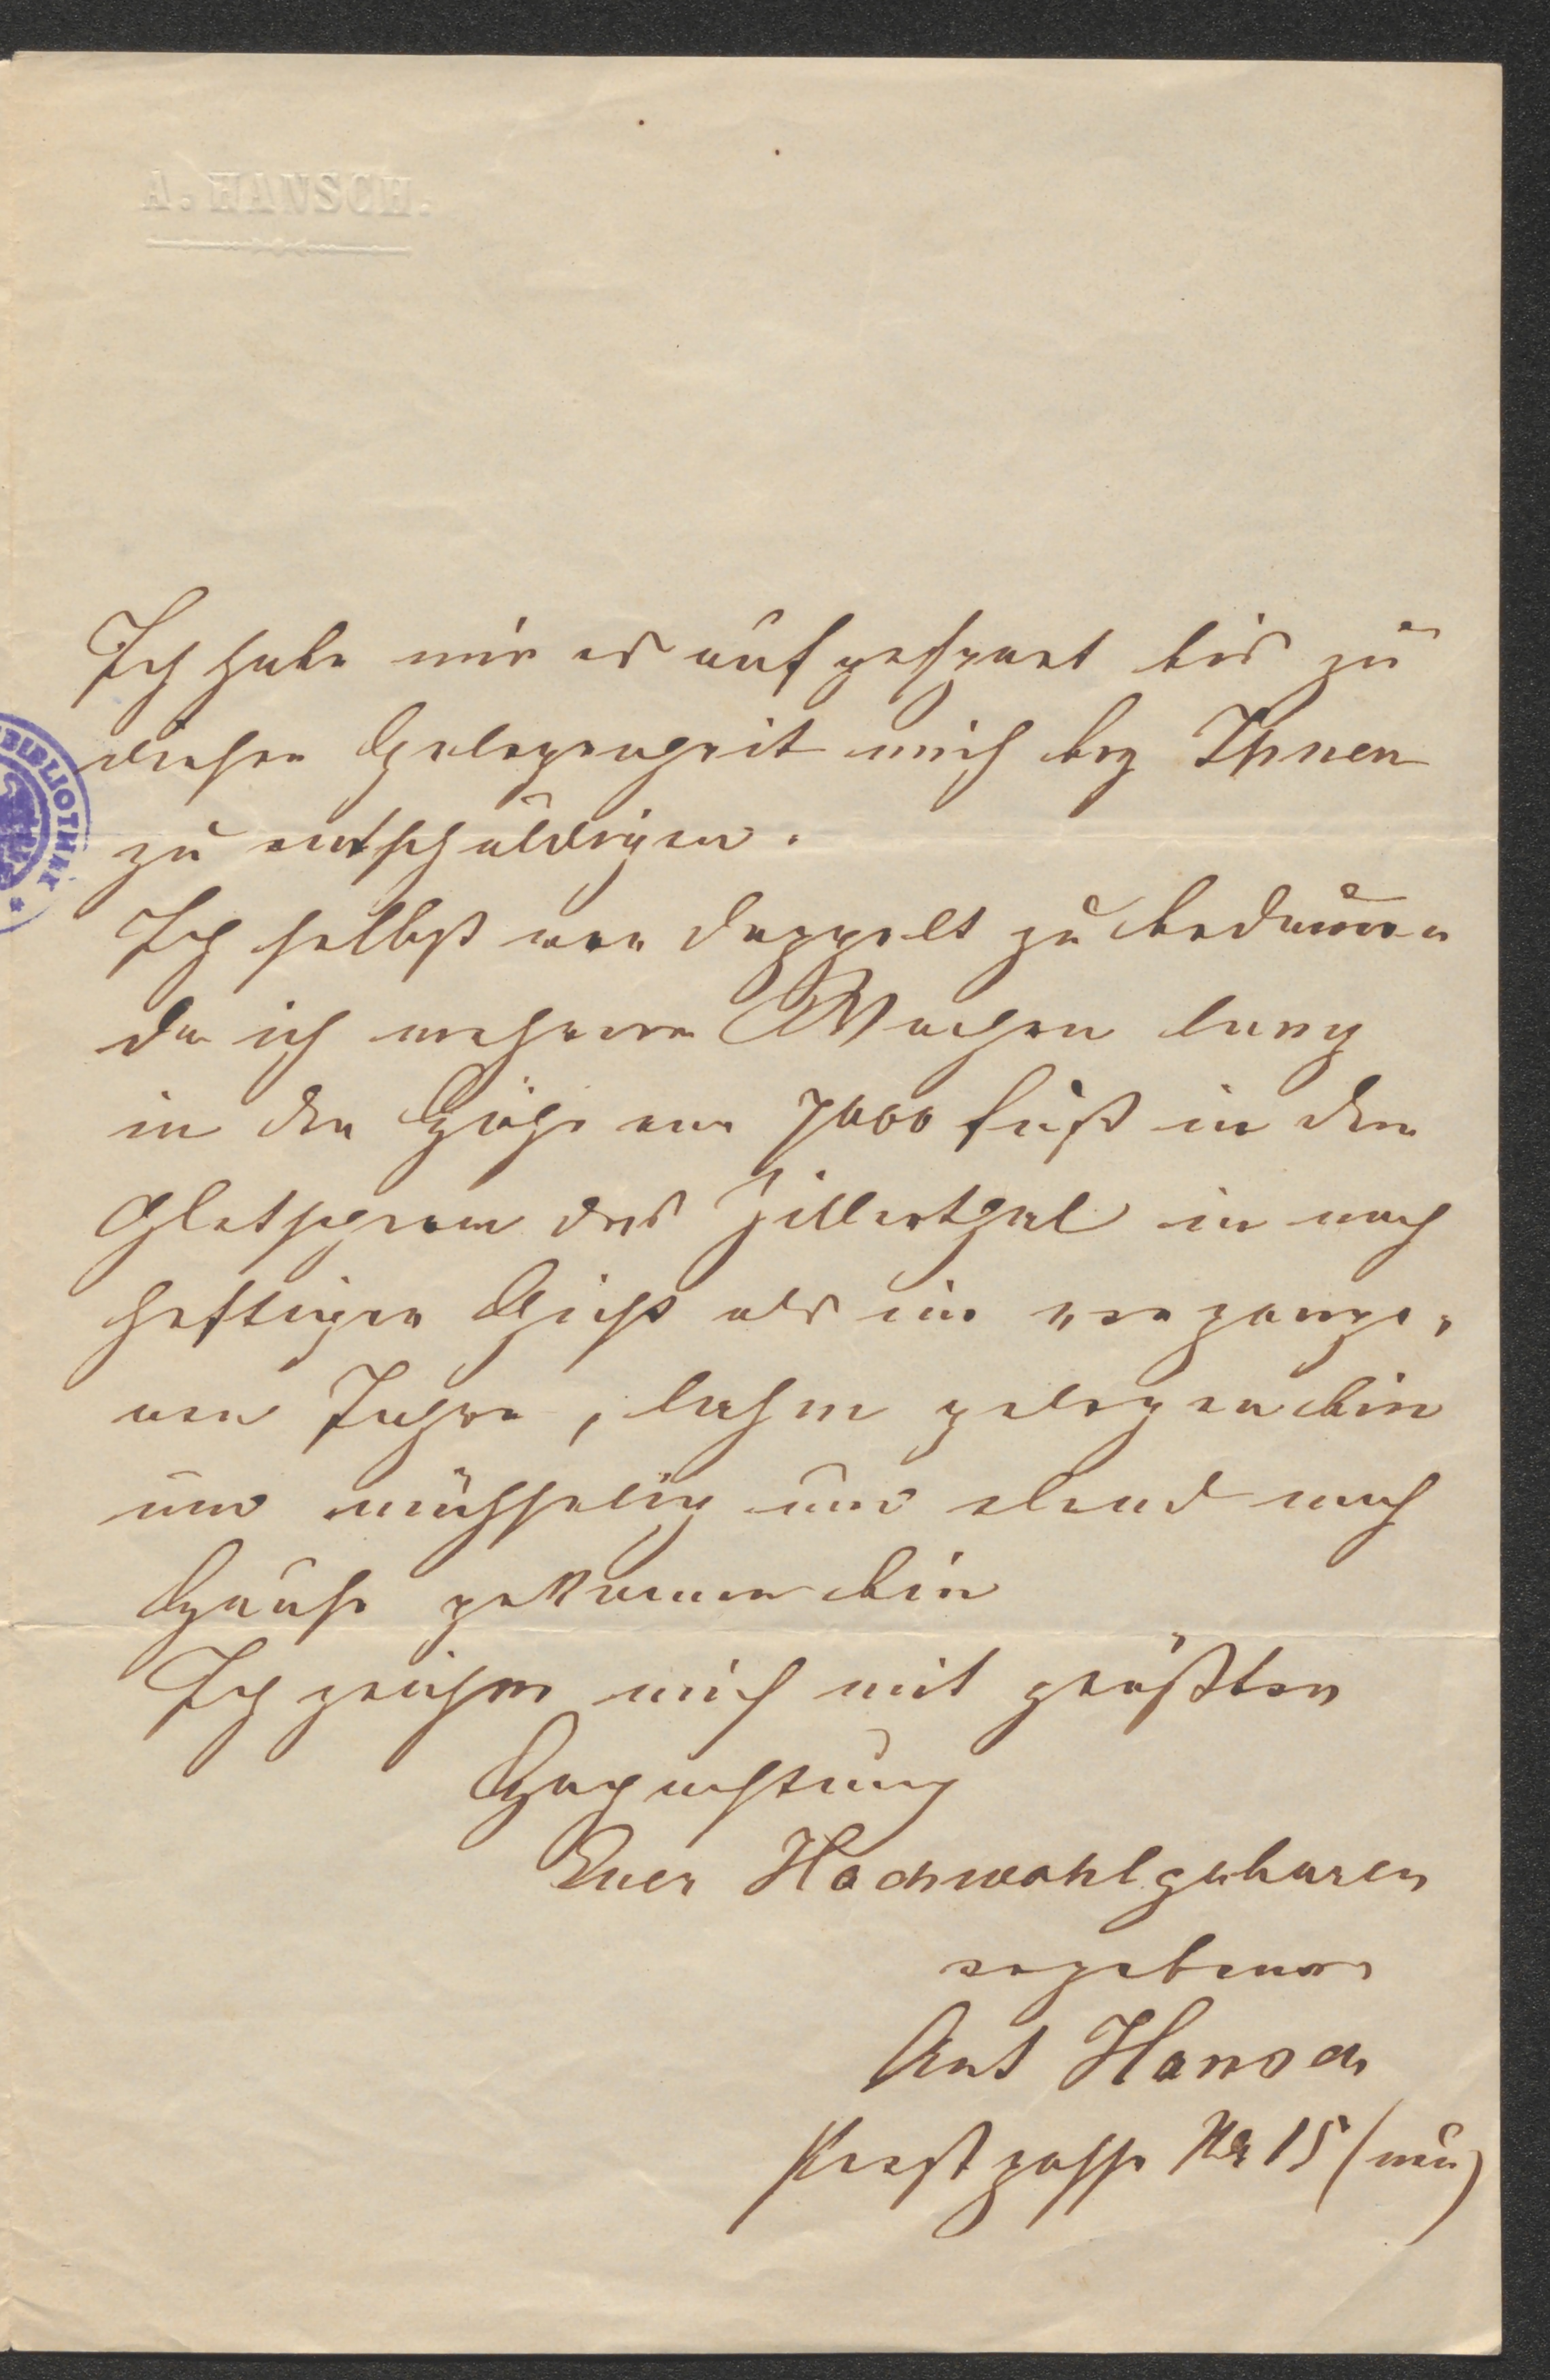 A. HANSCH.
BIBLIOTHEK
Ich habe mir es aufgespart bis zu
dieser Gelegenheit mich bey Ihnen
zu entschuldigen.
Ich selbst war doppelt zu bedauern
da ich mehrere Wochen lang
in der Höhe von 7000 Fuß in den
Gletschern des Zillerthal in noch
heftiger Gicht als im vergange-
nen Jahre, lahm gelegen bin
und mühselig und elend nach
Hause gekommen bin
Ich zeichne mich mit größter
Hochachtung
Euer Hochwohlgeboren
ergebener
Ant Hansch
Preßgasse Nr 15 (neu)